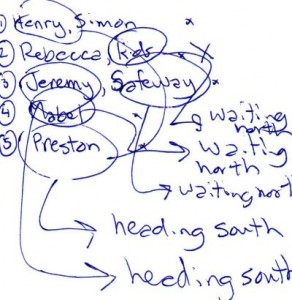 1 Henry, Simon
2 Rebecca, kids
3 Jeremy, Safeway
4 Mabel
5 Preston
waiting
north
waiting
north
waiting north
heading south
heading south